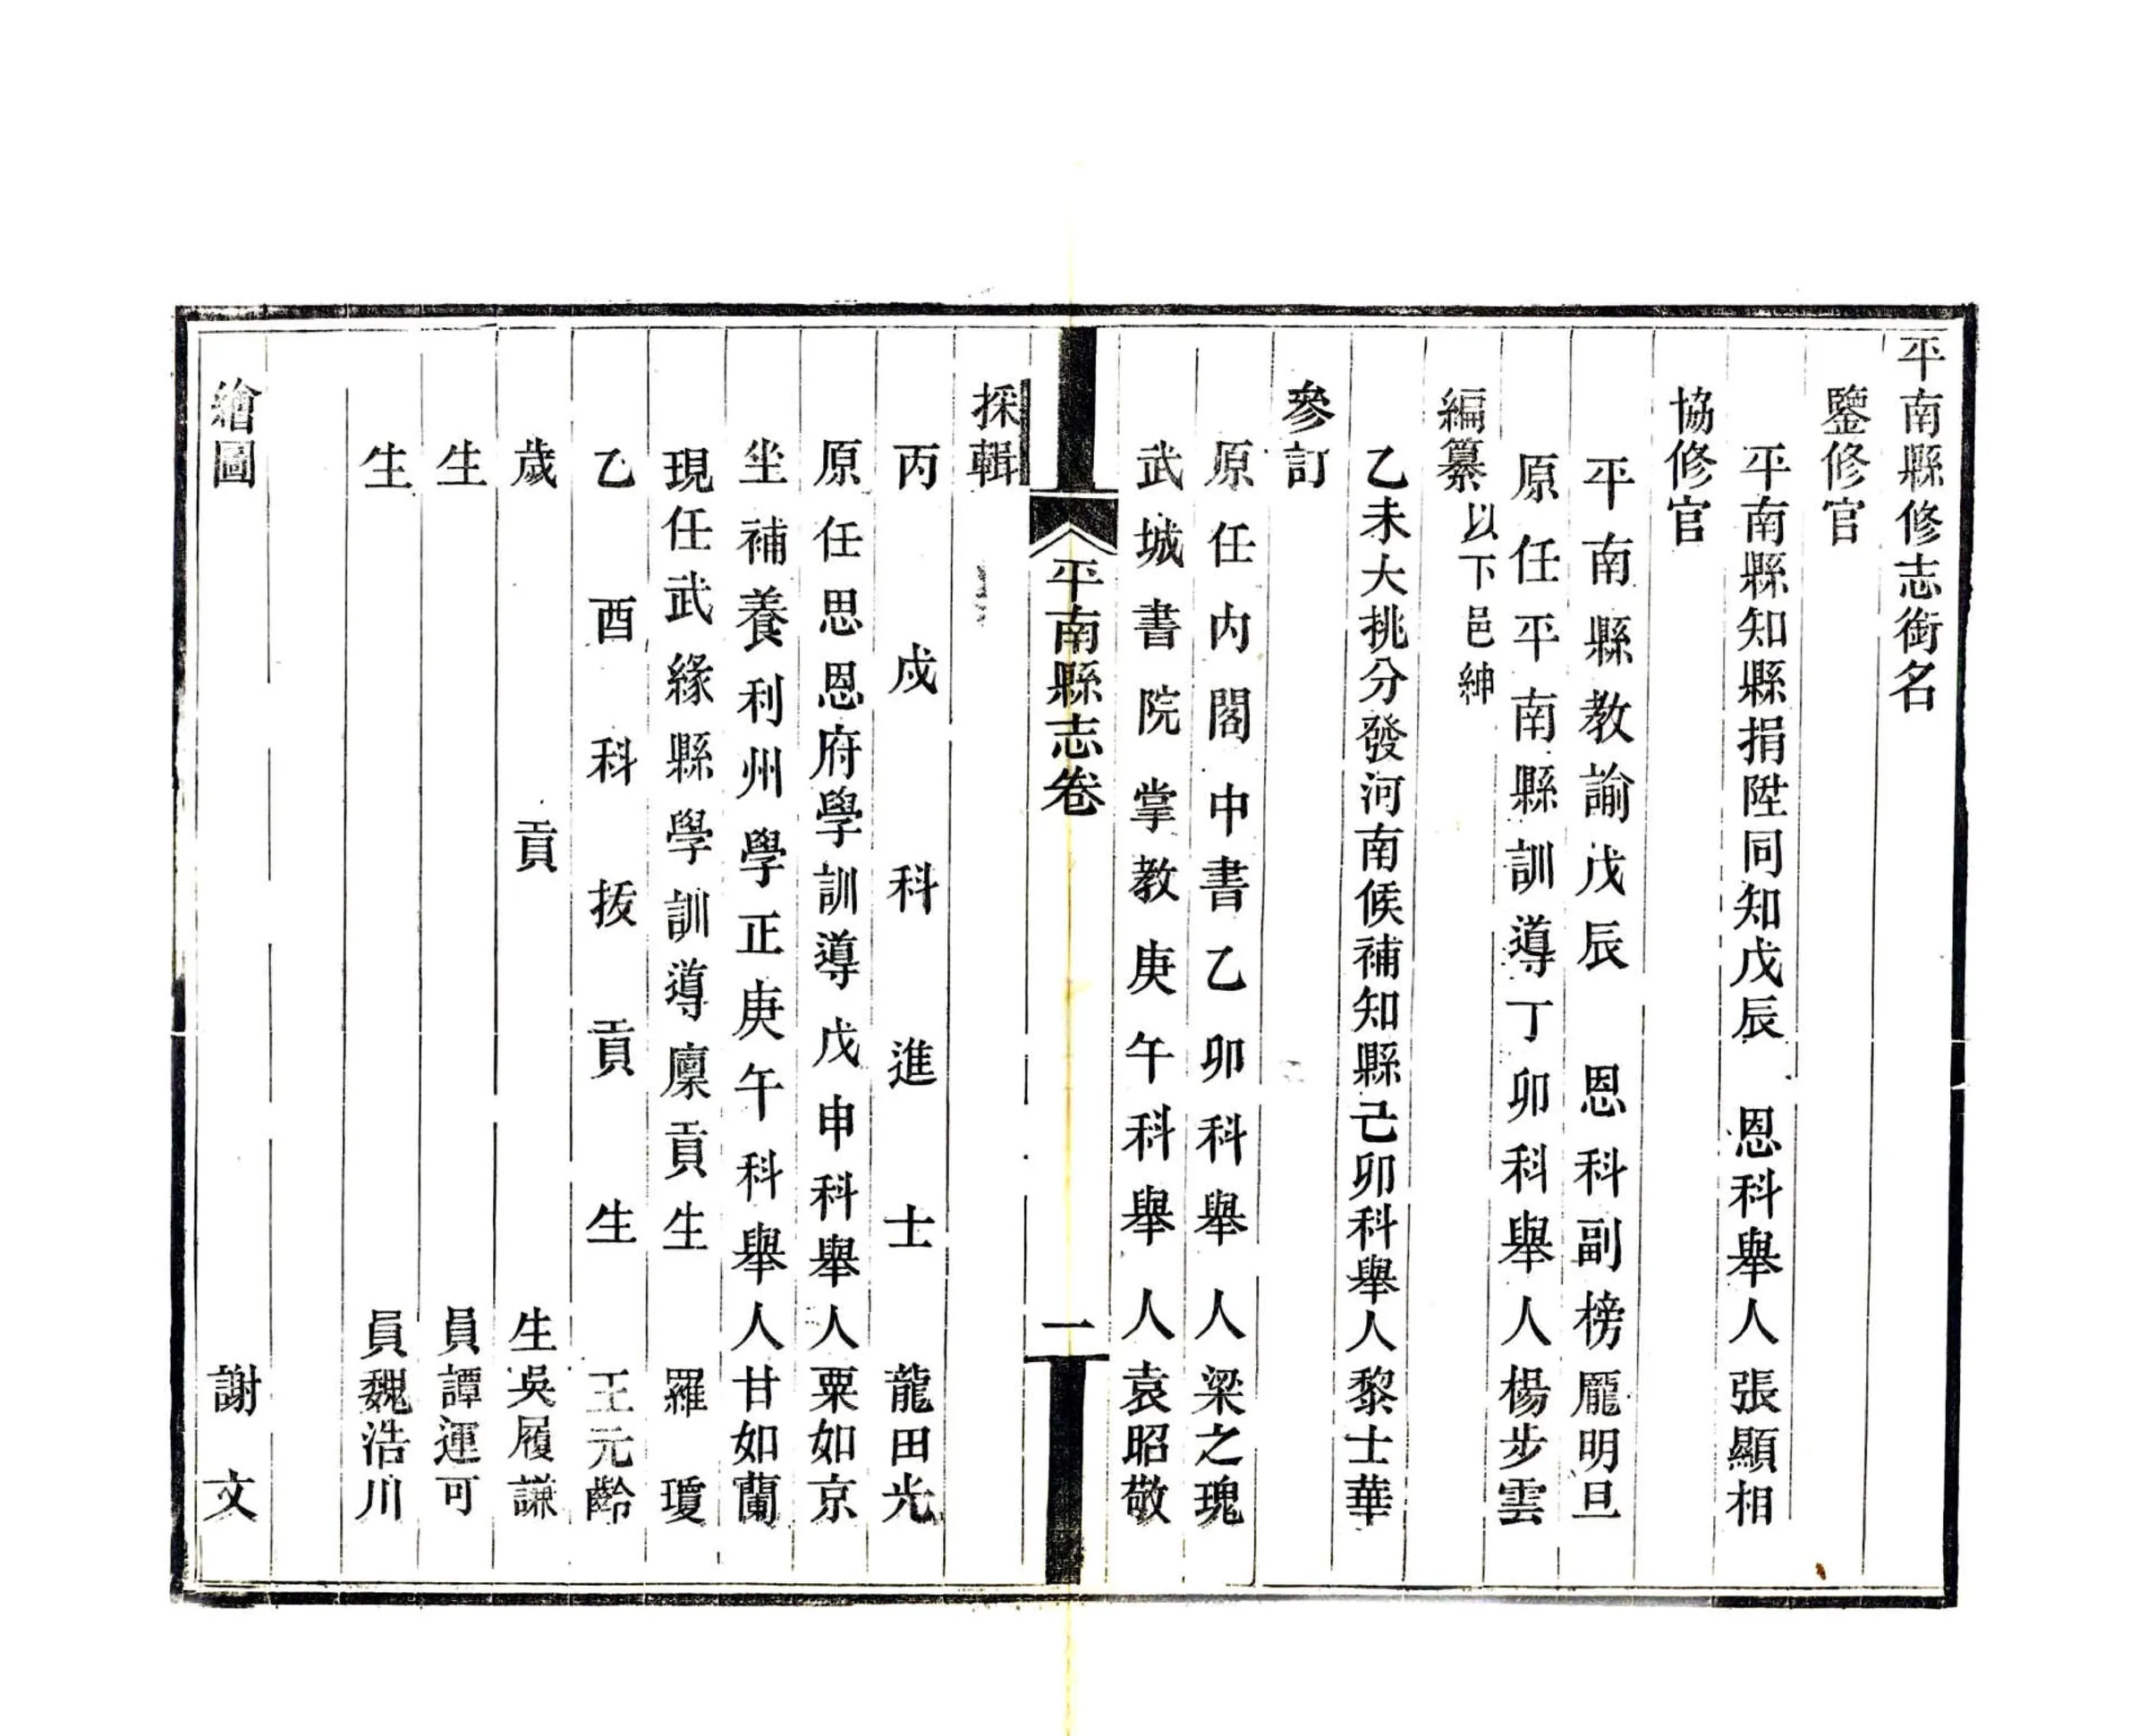 平南縣修志銜名
鑒修官
平南縣知縣捐陞同知戊辰　恩科舉人張顯相
協修官
平南縣教諭戊辰　恩科副榜龎明旦
原任平南縣訓導丁卯科舉人楊步雲
編纂以下邑紳
乙未大挑分發河南候補知縣己卯科舉人黎士華
參訂
原任内閣中書乙卯科舉人梁之瑰
武城書院掌教庚午科舉人袁昭敬
平南縣志卷　一
採輯
丙戌科進士龍田光
原任思恩府學訓導戊申科舉人粟如京
坐補養利州學正庚午科舉人甘如蘭
現任武緣縣學訓導廩貢生羅瓊
乙酉科拔貢生王元齡
歲貢生吳履謙
生員譚運可
生員魏浩川
繪圖　謝文